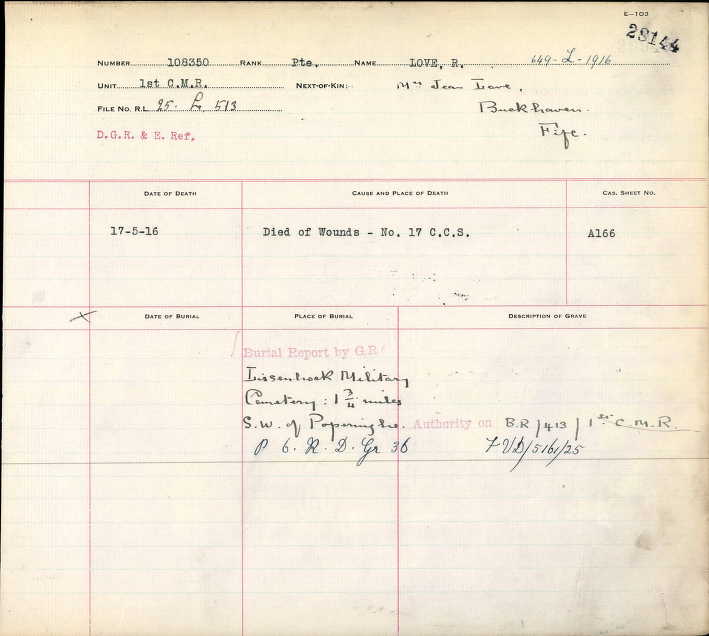 E-103
23144
NUMBER 108350 RANK Pte. NAME LOVE, R. 649-L-1916
UNIT 1st C.M.R. NEXT-OF-KIN: Mrs Jean Love,
FILE NO. R.L 25. L. 513 Buckhaven.
Fife.
D.G.R. & E. Ref.
DATE OF DEATH CAUSE AND PLACE OF DEATH CAS. SHEET NO.
17-5-16 Died of Wounds - No. 17 C.C.S. A166
DATE OF BURIAL PLACE OF BURIAL DESCRIPTION OF GRAVE
Burial Report by G.R.
Lissenhoek Military
Cemetery: 1 3/4 miles
S.W. of Poperinghe. Authority on B.R/413/1st C.M.R.
P 6. R. D. Gr 36 7VD/5161/25